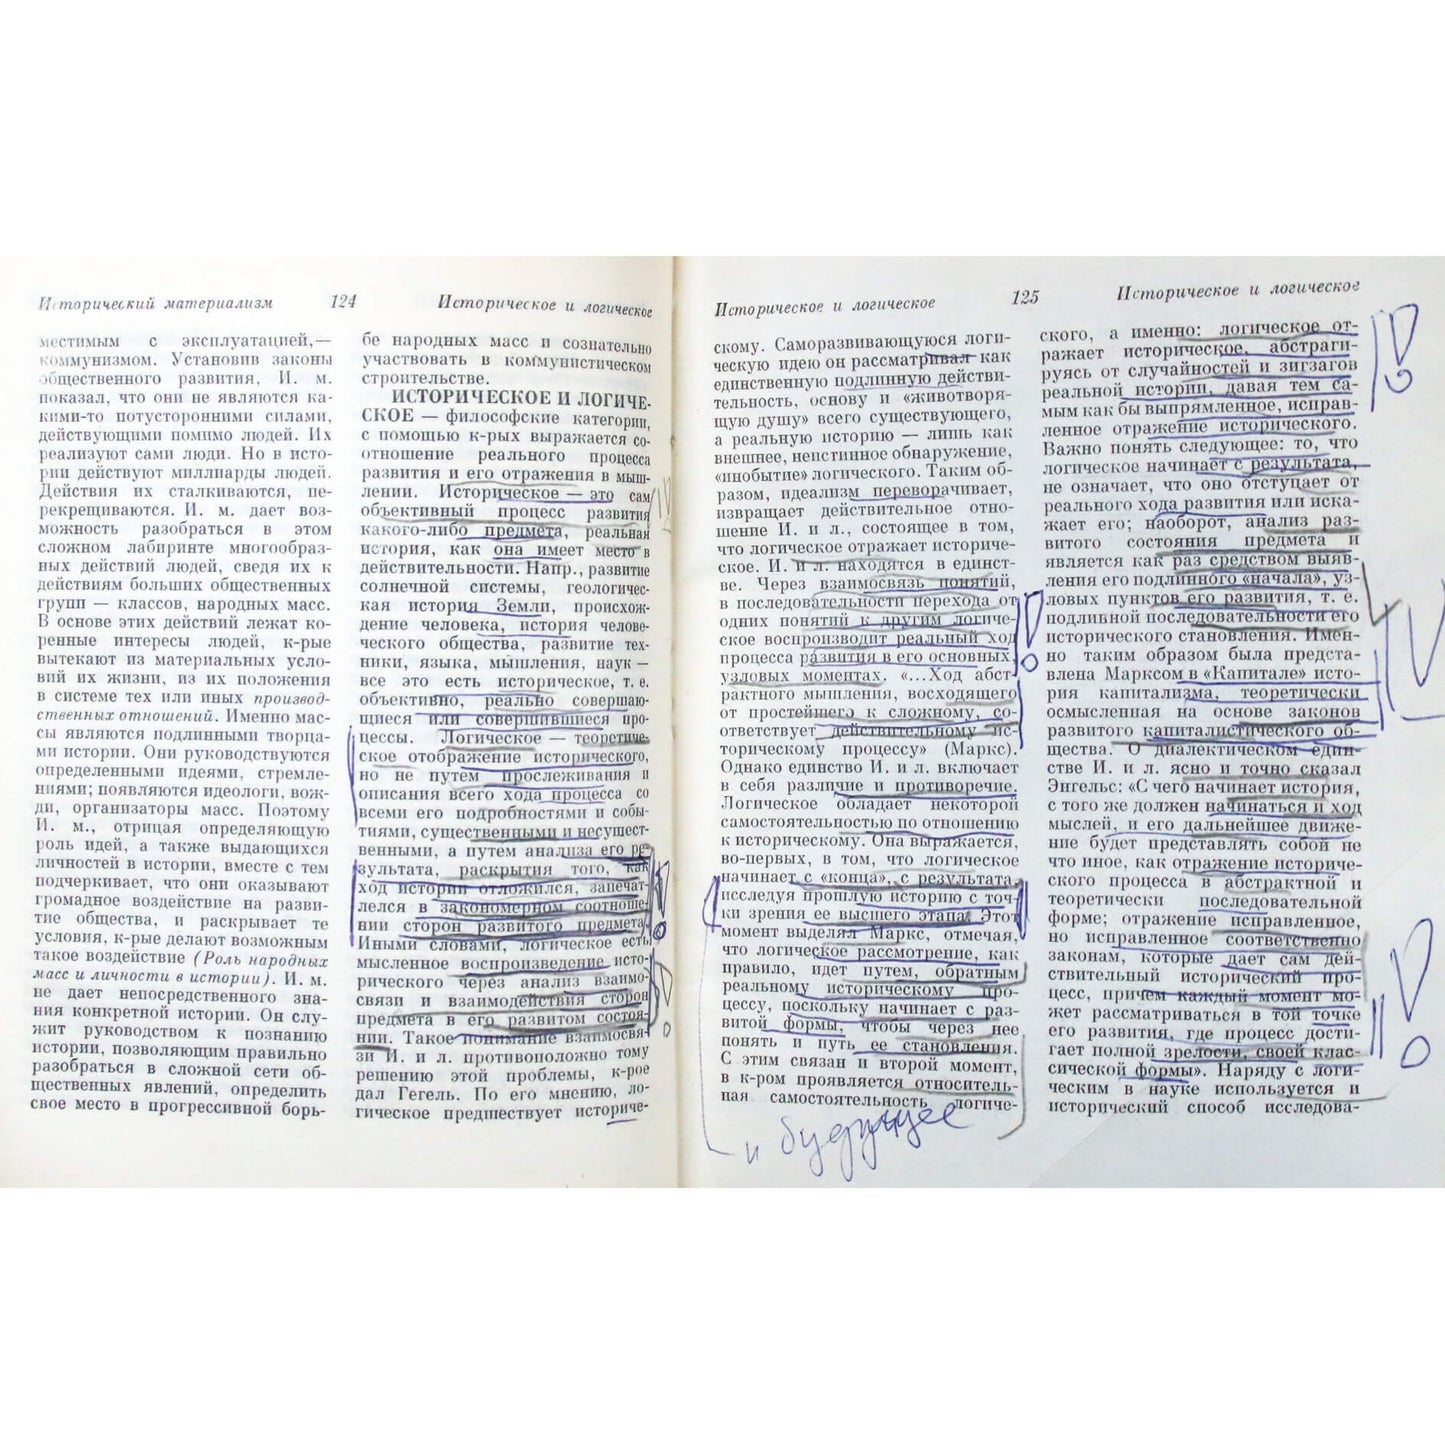 Исторический материализм 124 Историческое и логическое
местимым с эксплуатацией,—
коммунизмом. Установив законы
общественного развития, И. м.
показал, что они не являются ка-
кими-то потусторонними силами,
действующими помимо людей. Их
реализуют сами люди. Но в исто-
рии действуют миллиарды людей.
Действия их сталкиваются, пе-
рекрещиваются. И. м. дает воз-
можность разобраться в этом
сложном лабиринте многообраз-
ных действий людей, сведя их к
действиям больших общественных
групп — классов, народных масс.
В основе этих действий лежат ко-
ренные интересы людей, к-рые
вытекают из материальных усло-
вий их жизни, из их положения
в системе тех или иных производ-
ственных отношений. Именно мас-
сы являются подлинными творца-
ми истории. Они руководствуются
определенными идеями, стремле-
ниями; появляются идеологи, вож-
ди, организаторы масс. Поэтому
И. м., отрицая определяющую
роль идей, а также выдающихся
личностей в истории, вместе с тем
подчеркивает, что они оказывают
громадное воздействие на разви-
тие общества, и раскрывает те
условия, к-рые делают возможным
такое воздействие (Роль народных
масс и личности в истории). И. м.
не дает непосредственного зна-
ния конкретной истории. Он слу-
жит руководством к познанию
истории, позволяющим правильно
разобраться в сложной сети об-
щественных явлений, определить
свое место в прогрессивной борь-
бе народных масс и сознательно
участвовать в коммунистическом
строительстве.
ИСТОРИЧЕСКОЕ И ЛОГИЧЕ-
СКОЕ — философские категории,
с помощью к-рых выражается со-
отношение реального процесса
развития и его отражения в мыш-
лении. Историческое — это сам
объективный процесс развития
какого-либо предмета, реальная
история, как она имеет место в
действительности. Напр., развитие
солнечной системы, геологиче-
ская история Земли, происхож-
дение человека, история челове-
ческого общества, развитие тех-
ники, языка, мышления, наук —
все это есть историческое, т. е.
объективно, реально совершаю-
щиеся или совершившиеся про-
цессы. Логическое — теоретиче-
ское отображение исторического,
но не путем прослеживания и
описания всего хода процесса со
всеми его подробностями и собы-
тиями, существенными и несущест-
венными, а путем анализа его ре-
зультата, раскрытия того, как
ход истории отложился, запечат-
лелся в закономерном соотноше-
нии сторон развитого предмета.
Иными словами, логическое есть
мысленное воспроизведение исто-
рического через анализ взаимо-
связи и взаимодействия сторон
предмета в его развитом состоя-
нии. Такое понимание взаимосвя-
зи И. и л. противоположно тому
решению этой проблемы, к-рое
дал Гегель. По его мнению, ло-
гическое предшествует историче-
Историческое и логическое 125 Историческое и логическое
скому. Саморазвивающуюся логи-
ческую идею он рассматривал как
единственную подлинную действи-
тельность, основу и «животворя-
щую душу» всего существующего,
а реальную историю — лишь как
внешнее, неистинное обнаружение,
«инобытие» логического. Таким об-
разом, идеализм переворачивает,
извращает действительное отно-
шение И. и л., состоящее в том,
что логическое отражает историче-
ское. И. и л. находятся в единст-
ве. Через взаимосвязь понятий,
в последовательности перехода от
одних понятий к другим логиче-
ское воспроизводит реальный ход
процесса развития в его основных,
узловых моментах. «...Ход абст-
рактного мышления, восходящего
от простейшего к сложному, со-
ответствует действительному ис-
торическому процессу» (Маркс).
Однако единство И. и л. включает
в себя различие и противоречие.
Логическое обладает некоторой
самостоятельностью по отношению
к историческому. Она выражается,
во-первых, в том, что логическое
начинает с «конца», с результата,
исследуя прошлую историю с точ-
ки зрения ее высшего этапа. Этот
момент выделял Маркс, отмечая,
что логическое рассмотрение, как
правило, идет путем, обратным
реальному историческому про-
цессу, поскольку начинает с раз-
витой формы, чтобы через нее
понять и путь ее становления.
С этим связан и второй момент,
в к-ром проявляется относитель-
ная самостоятельность логиче-
и будущее
ского, а именно: логическое от-
ражает историческое, абстраги-
руясь от случайностей и зигзагов
реальной истории, давая тем са-
мым как бы выпрямленное, исправ-
ленное отражение исторического.
Важно понять следующее: то, что
логическое начинает с результата,
не означает, что оно отступает от
реального хода развития или иска-
жает его; наоборот, анализ раз-
витого состояния предмета и
является как раз средством выяв-
ления его подлинного «начала», уз-
ловых пунктов его развития, т. е.
подлинной последовательности его
исторического становления. Имен-
но таким образом была предста-
влена Марксом в «Капитале» исто-
рия капитализма, теоретически
осмысленная на основе законов
развитого капиталистического об-
щества. О диалектическом един-
стве И. и л. ясно и точно сказал
Энгельс: «С чего начинает история,
с того же должен начинаться и ход
мыслей, и его дальнейшее движе-
ние будет представлять собой не
что иное, как отражение историче-
ского процесса в абстрактной и
теоретически последовательной
форме; отражение исправленное,
но исправленное соответственно
законам, которые дает сам дей-
ствительный исторический про-
цесс, причем каждый момент мо-
жет рассматриваться в той точке
его развития, где процесс дости-
гает полной зрелости, своей клас-
сической формы». Наряду с логи-
ческим в науке используется и
исторический способ исследова-